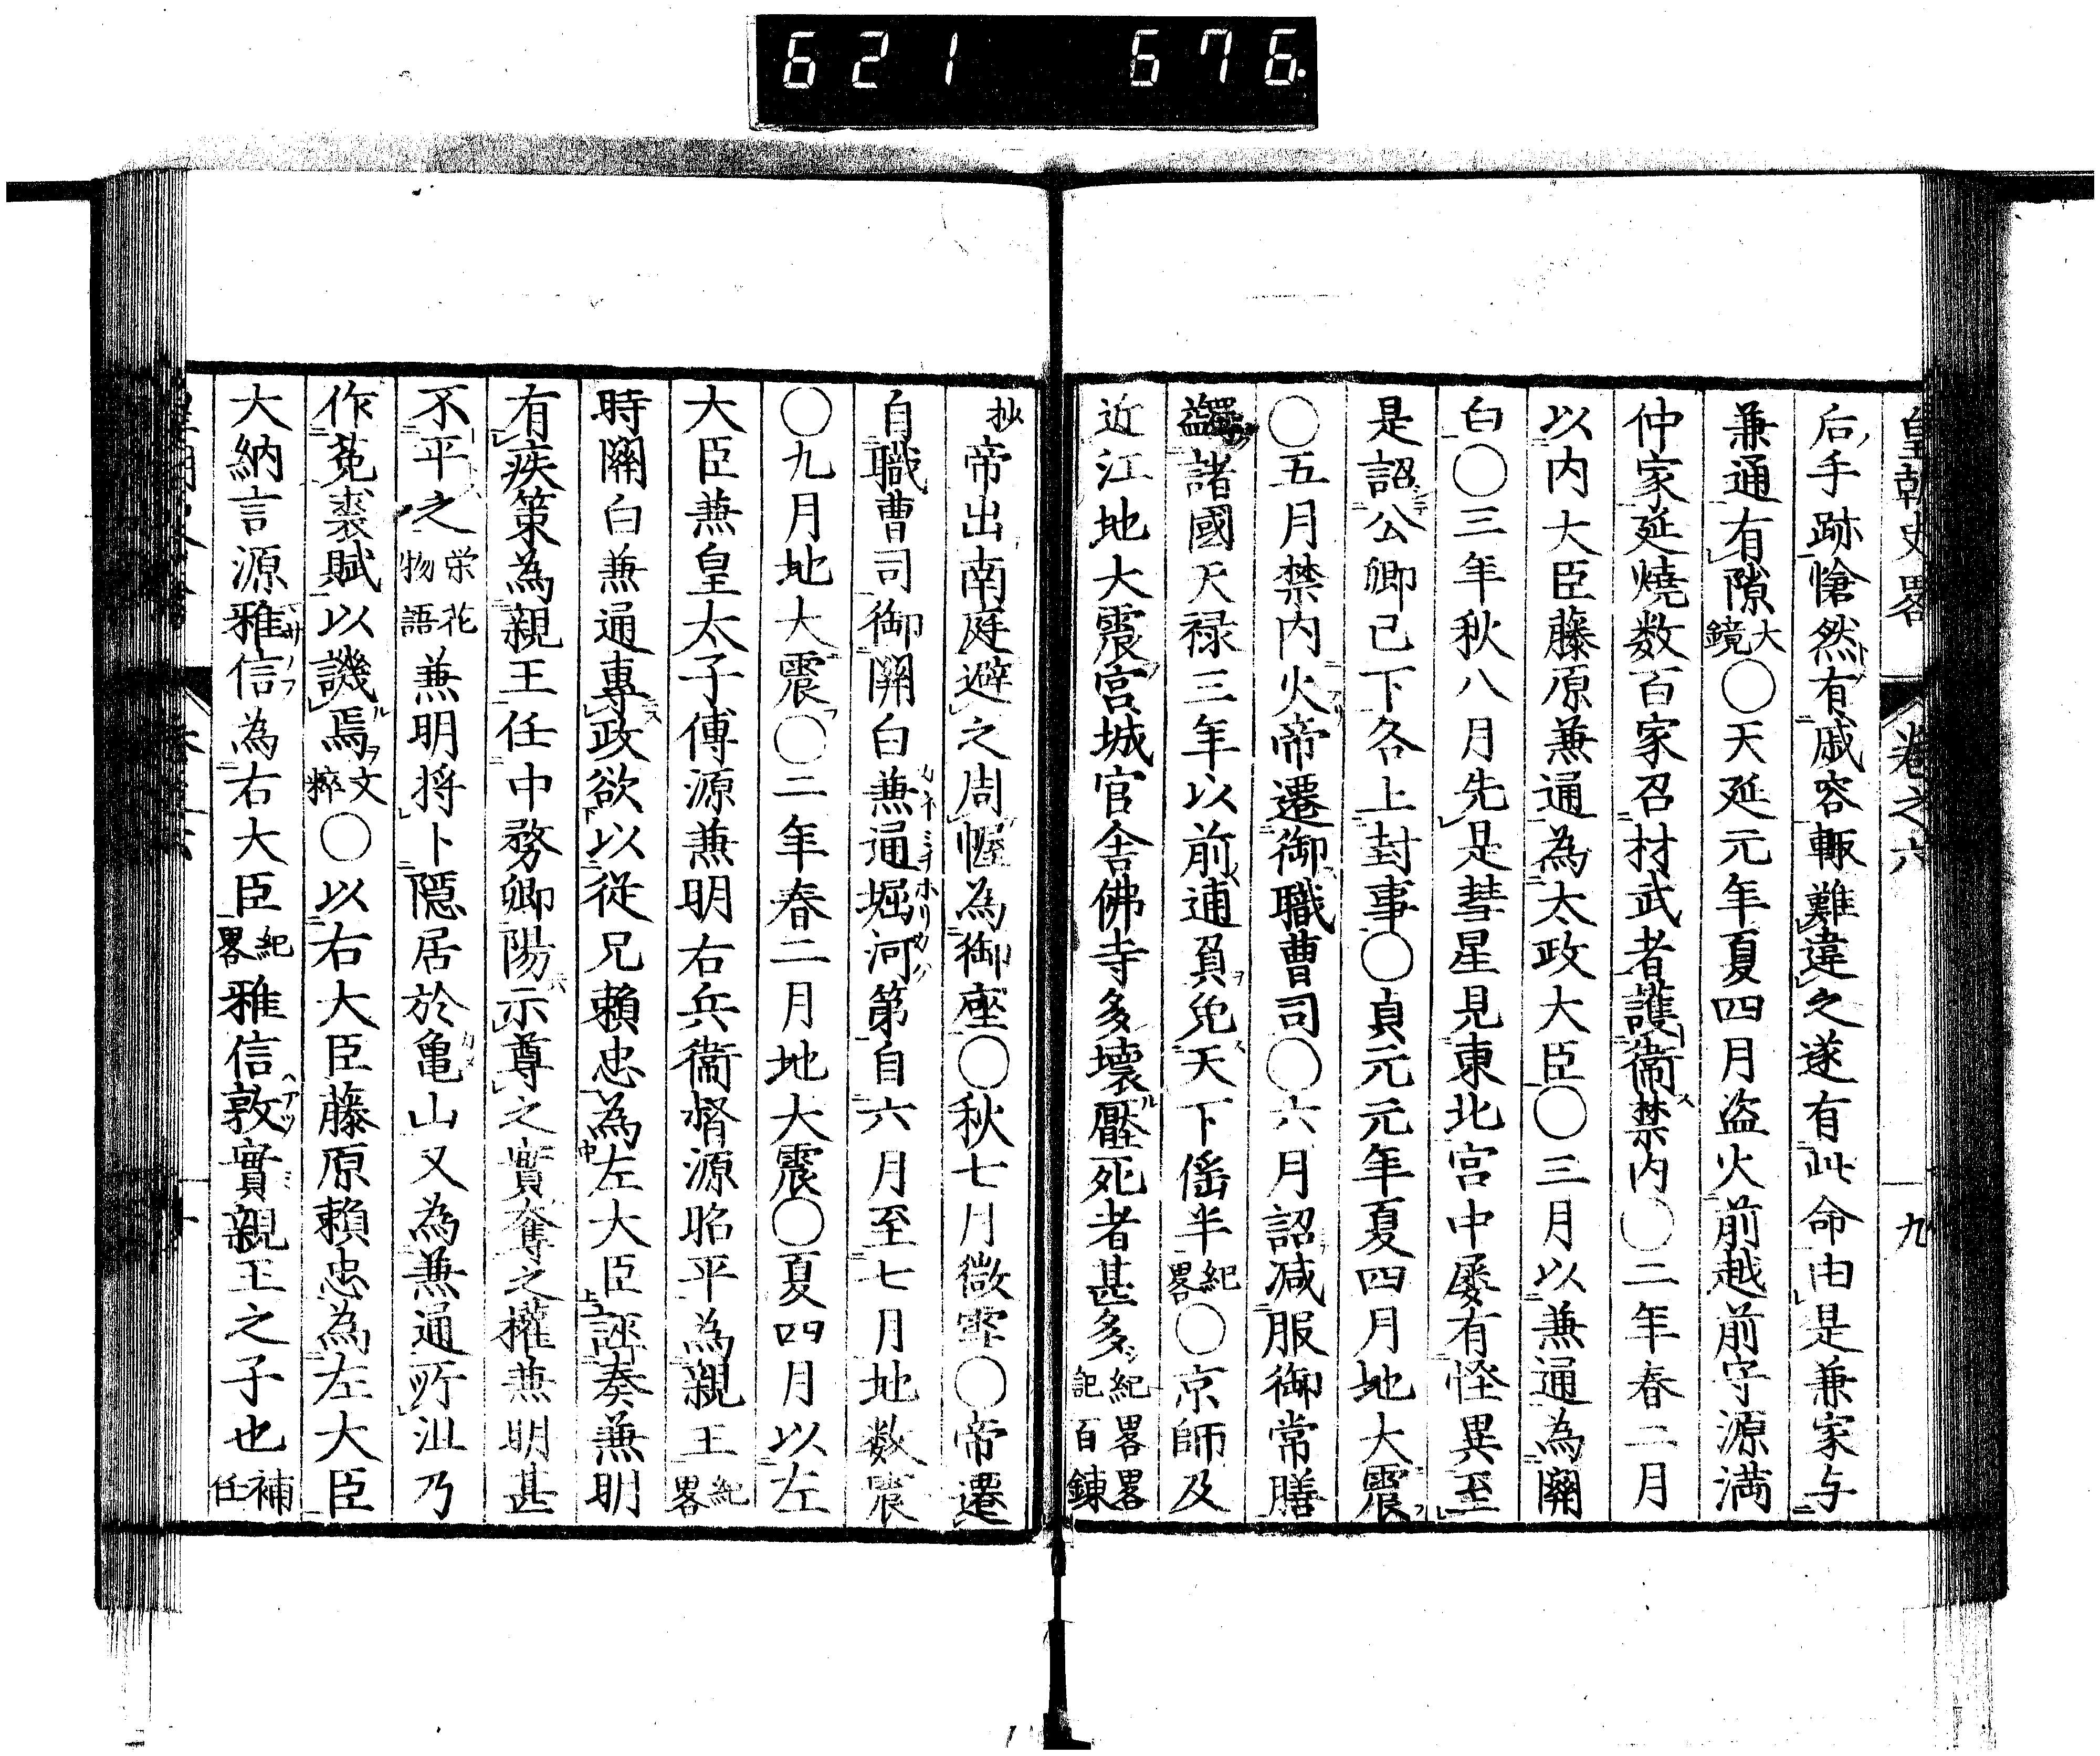 621 676
皇朝史畧 卷之六 九
后手跡愴然有戚容輙難違之遂有此命由是兼家与
兼通有隙大鏡〇天延元年夏四月盗火前越前守源満
仲家延燒数百家召材武者護衞禁内〇二年春二月
以内大臣藤原兼通為太政大臣〇三月以兼通為關
白〇三年秋八月先是彗星見東北宮中屡有怪異至
是詔公卿已下各上封事〇貞元元年夏四月地大震
〇五月禁内火帝遷御職曹司〇六月詔减服御常膳
蠲諸國天禄三年以前逋負免天下徭半紀畧〇京師及
近江地大震宮城官舎佛寺多壞壓死者甚多紀畧百錬
抄帝出南庭避之周幄為御座〇秋七月徴霖〇帝遷
自職曹司御關白兼通堀河第自六月至七月地数震
〇九月地大震〇二年春二月地大震〇夏四月以左
大臣兼皇太子傅源兼明右兵衞督源昭平為親王紀畧
時關白兼通專政欲以從兄賴忠為左大臣誣奏兼明
有疾策為親王任中務卿陽示尊之實奪之權兼明甚
不平之栄花物語兼明将卜隠居於亀山又為兼通所沮乃
作菟裘賦以譏焉文粹〇以右大臣藤原賴忠為左大臣
大納言源雅信為右大臣紀畧雅信敦實親王之子也補任